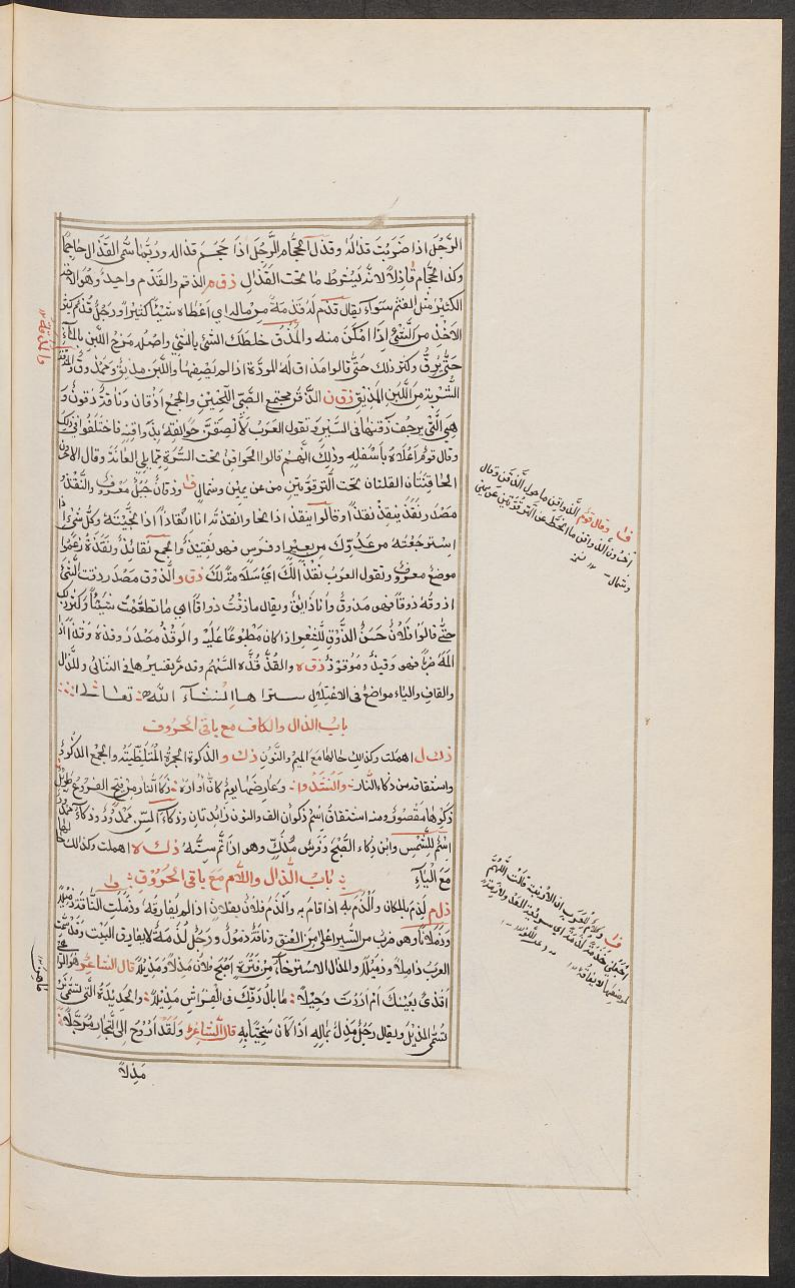 الرَّجُلَ اذا ضَرَبْتَ قذالهُ وقذل الحجّام الرَّجُلَ اذا حَجَمَ قذاله وربّما سُمّى القَذال حاجِمًا
وكذا الحجّام قاذِلاً لانّه يَشْرُط ما تحت القَذالِ ذ ق م الذقم والقذم واحِدٌ وهُوَ الاخذ
الكثير مثل الغثم سَواءٌ يقال قَذَمَ لَهُ قذمةً من ماله اي اعْطاه شيئًا كثيرًا ورجُل قُذَم كثير
الاخْذ من الشَّيْ اذا امكَنَ منه والمَذْق خلطكَ الشئ بالشئ واصْله مَزج اللّبن بالماءِ
حَتّى يرقَّ وكثر ذلك حَتّى قالوا مذق له المودّة اذا لم يَصْفِهَا واللّبَن مذيق وممذوق والمذقة
الشّربة من اللَّبن المَذيق ذ ق ن الذَّقن مجتمع الصَّبيّ اللّحيَيْنِ والجمع اذقان وناقةٌ ذقون و
هِيَ الّتي ترجُف ذقنها في السّيْر وتقول العَرَبُ لَالْصِقَنَّ حواقِنه بذَواقِنِه فاختَلَفُوا في ذلك
وقال قوم اعْلاهُ بأسْفَله وذلِكَ انّهُم قالوا الحواقن تحت السُّرّة مما يلي العانة وقال الاخرون
الحاقِنَتان القلتان تحت التّرقُوتين من عن يمين وشمالٍ ف وذقان جَبَل مَعْروف والنَّقذُ
مصْدر نَقَذَ ينقذ نقذًا وقالوا ينقذ اذا نجا وانقذتُه انا انقاذًا اذا نجّيْتَهُ وكلّ شئ
استرجَعْتَه من عدوّك من بعيرٍ او فرَسٍ فهو نقيذٌ والجمع نقائذُ ونقَذَةُ زعموا
موضع معروف وتقول العرب نقذًا لكَ اي سلامةً لكَ ذ ق و الذّوق مصْدر ذقت الشَّئَ
اذوقهُ ذَوقًا فهو مَذوق وانا ذائق ويقال ما ذُقتُ ذواقًا اي ما تطعّمت شيئًا وكثر ذلك
حتّى قالوا فلانٌ حَسَنُ الذَّوْقِ للشّعر اذا كان مَطبوعًا عَلَيْه والوقْذ مصْدر وقذهُ وقذًا اذا
المَهُ ضربًا فهو وقيذٌ وموقوذٌ ذ ق ه والقُذّ قُذّه السّهم وقد مرّ تفسيرُها في الثنائى وللذال
والقاف والياء مواضع في الاعتلال ستراها ان شاء الله تعالى
باب الذال والكاف مع باقى الحروف
ذ ك ل اهملت وكذلك حالها مَع الميم والنُّون ذ ك و الذَّكوة الجمرة المُتَلظّيَة والجمع الذّكوُ
واشتقاقه من ذكاءِ النّار وَاَنْشَدُوا وَعَارِضهما يومٌ كَانَّ اُوَارَهُ ذكا النّار من فيح الفروغ طويل
ذكوها مقصُورٌ ومنه اشتقاق اسْم ذكوان الف والنون زائدتان وذكاءُ السّن ممْدودٌ وذكاءُ ممدود
اسْم للشّمس وابن ذكاء الصُّبح وفرس مُذكٍّ وهو اذا تمّ سِنُّه ذ ك ه اهملت وكذلك حالها
مَعَ الْياءِ باب الذّال واللّام مَعَ باقى الحروف
ذ ل م لَذِمَ بالمكان وَاُلْذِمَ به اذا قام به واُلْذِمَ فلانٌ بفلانٍ اذا لم يفارقهُ وذمَلَت النّاقة ذميلاً
وذملانًا وهو ضرب من السّير اعلى من العَنق وناقةٌ ذمول ورجُل لُذَمَة لا يفارق البَيْت وقد سمّت
العرب ذاملاً وذميلاً والمذال الاسترخاء من فترةٍ اصبح فلان مَذِلاً ومذيلاً قال الشاعر
اقذىً بعَيْنكَ امْ ارَدْتَ رَحيلاً ما بال دَفّكَ في الفِراشِ مذيلا والحديدة الّتي تسمّى نرم
تسمّى المذيل ويقال رجُلٌ مَذِلٌ بماله اذا كان سَخيًّا به قال الشاعر وَلقد اَرُوحُ الى التِّجَارِ مُرَجَّلاً
مَذِلاً
ف وقال قوم الذواقن ما حول الذقن وقال
اخرون الذواقن ما انحطّ عن الترقوتين عن يمين
وشمال